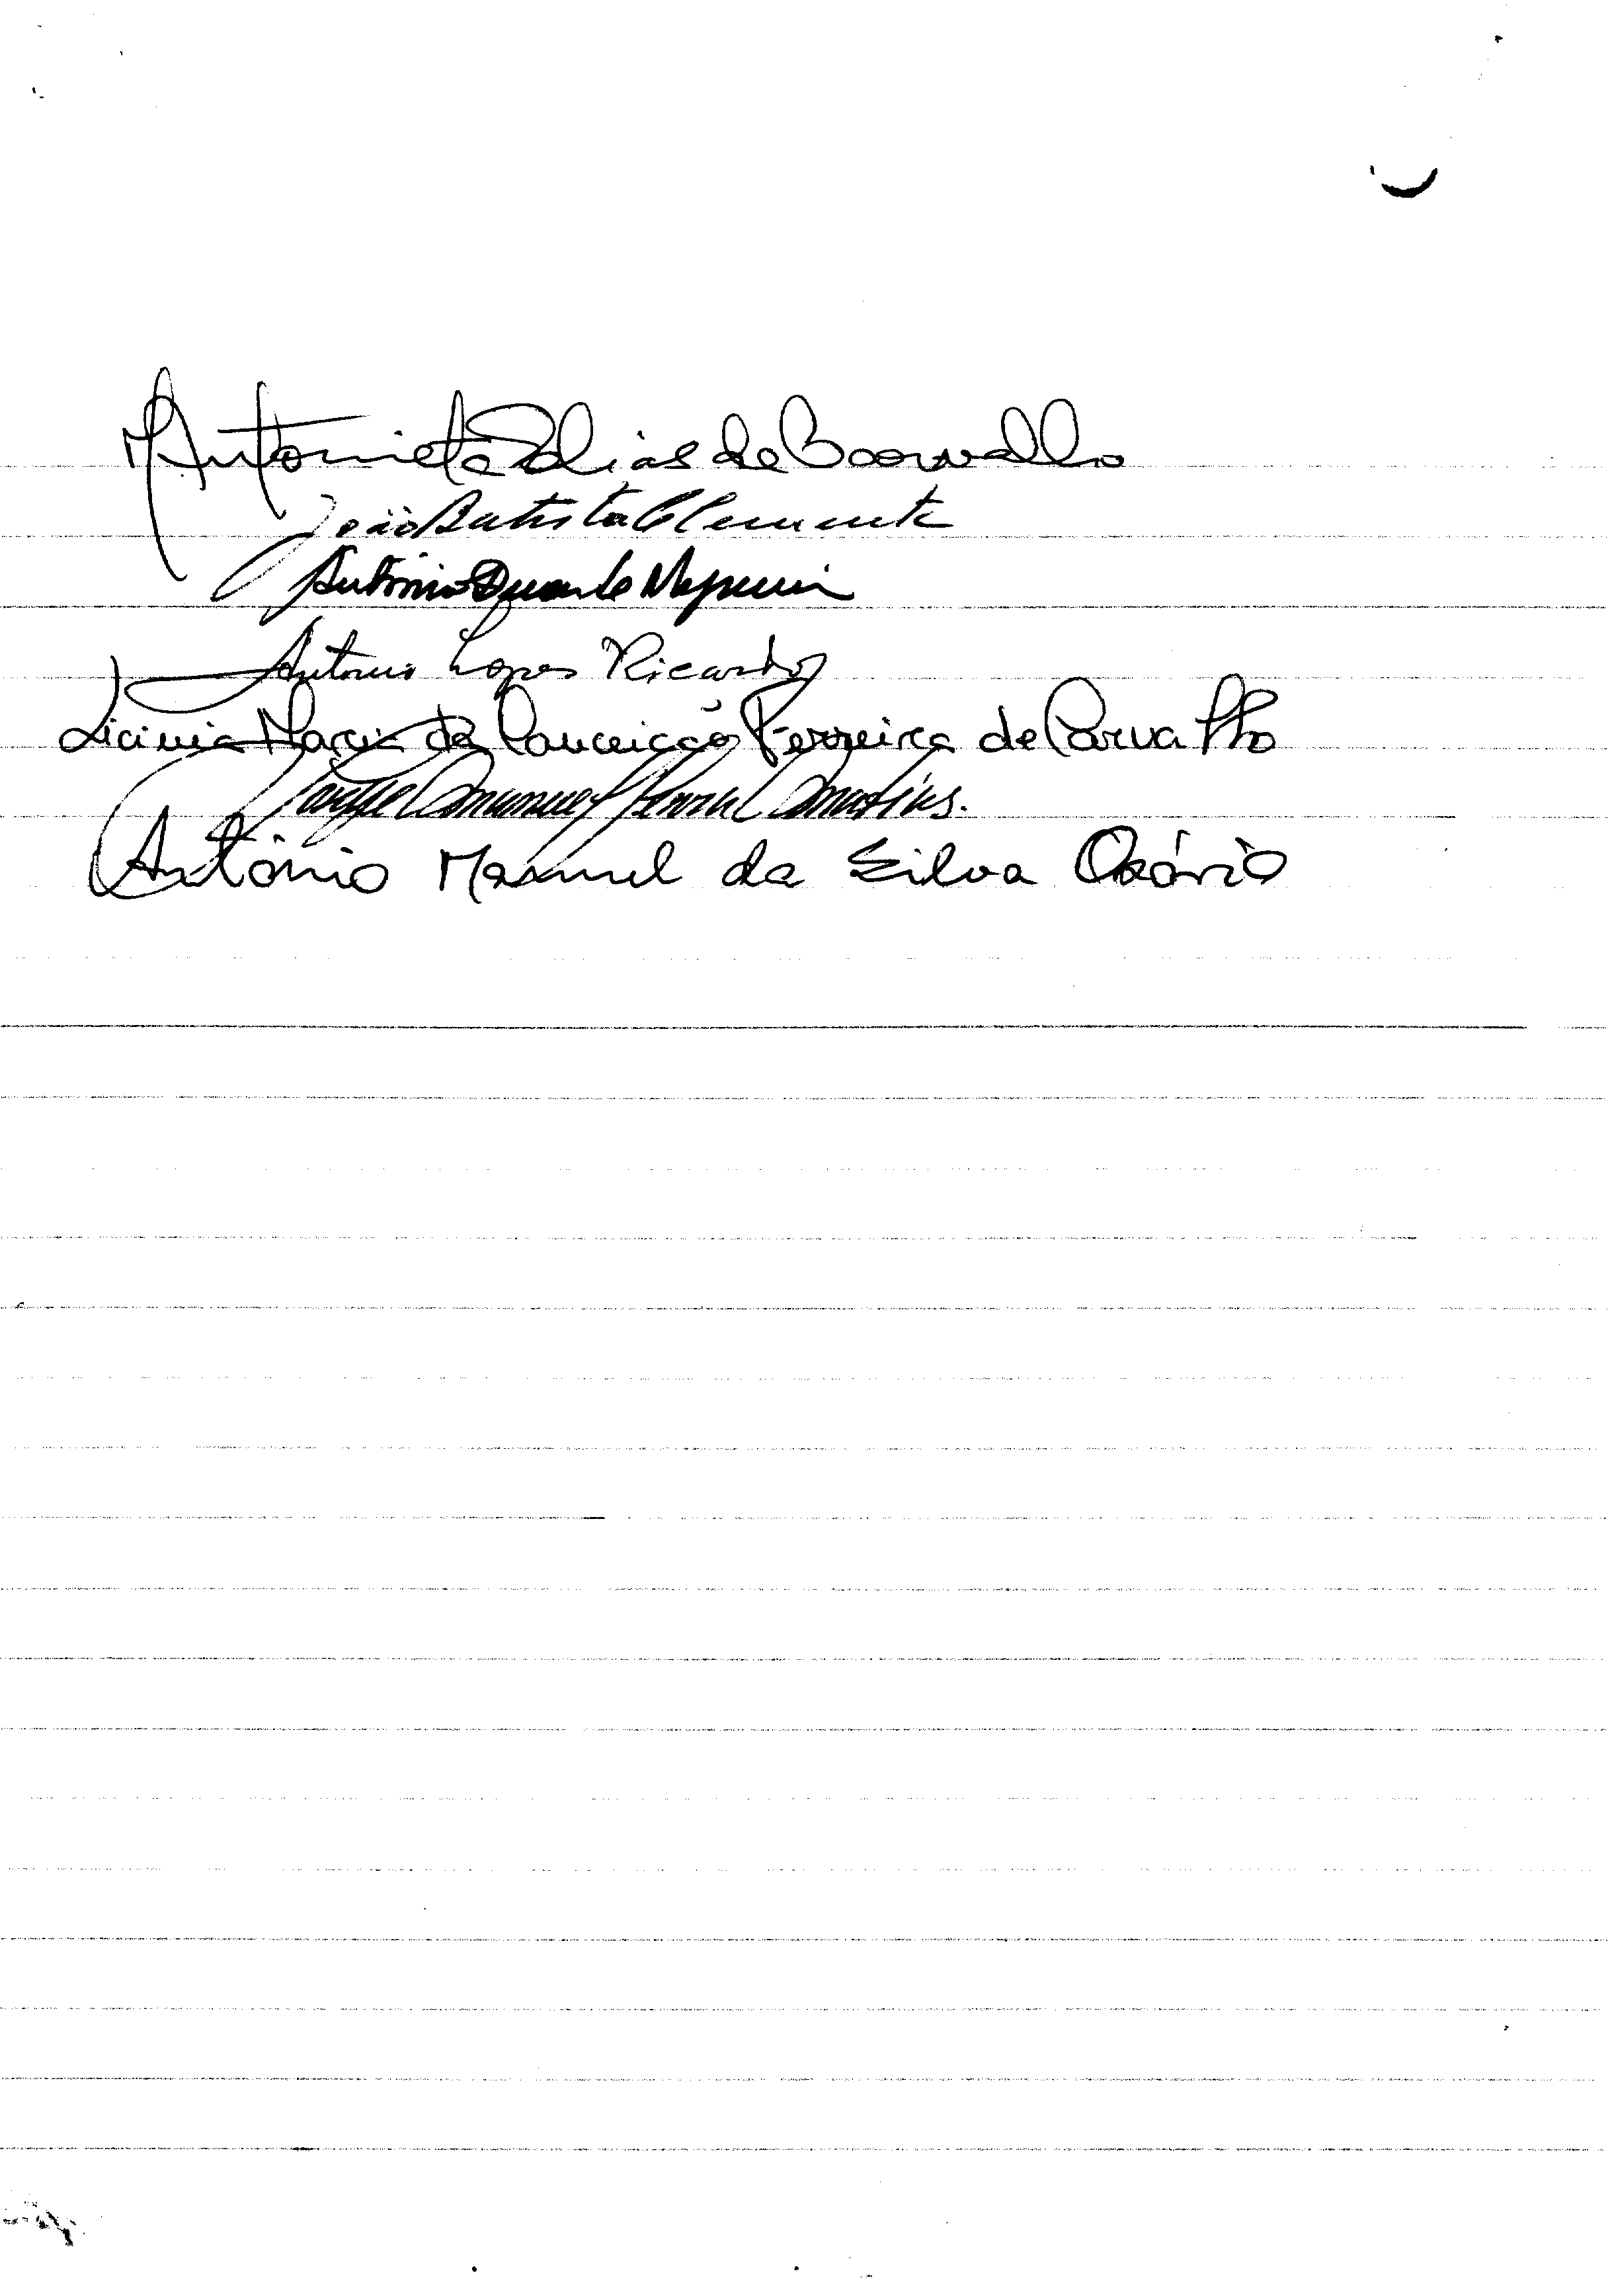 Antonieta Dias de Carvalho
João Batista Clemente
António Duarte
António Lopes Ricardo
Licinia Maria da Conceição Ferreira de Carvalho
Jorge Manuel Martins.
António Manuel da Silva Osório